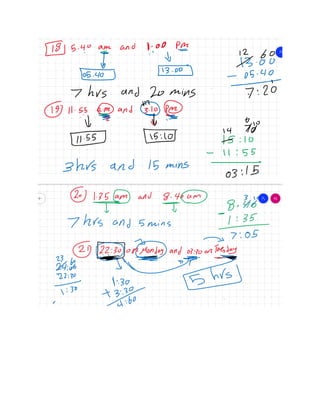 18) 5.40 am and 1.00 pm
05.40
13.00
12 60
13.00
- 05.40
7:20
7 hrs and 20 mins
19) 11.55 am and 3:10 pm
11.55
15:10
14
15:10
- 11:55
03:15
3 hrs and 15 mins
1.35 am and 8.40 am
8.40
- 1:35
7:05
7 hrs and 5 mins
21) 22:30 on Monday and 03:30 on Tuesday
23 60
24:00
22:30
1:30
1:30
+ 3:30
4:60
5 hrs